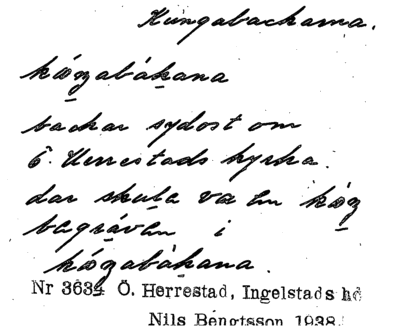 Kungabackarna.
kǿŋabákana
backar sydost om
Ö. Herrestads kyrka.
dar skula va en kǿŋ
begráven i
kǿŋabákana.
Nr 3634 Ö. Herrestad, Ingelstads hd
Nils Bengtsson 1938.